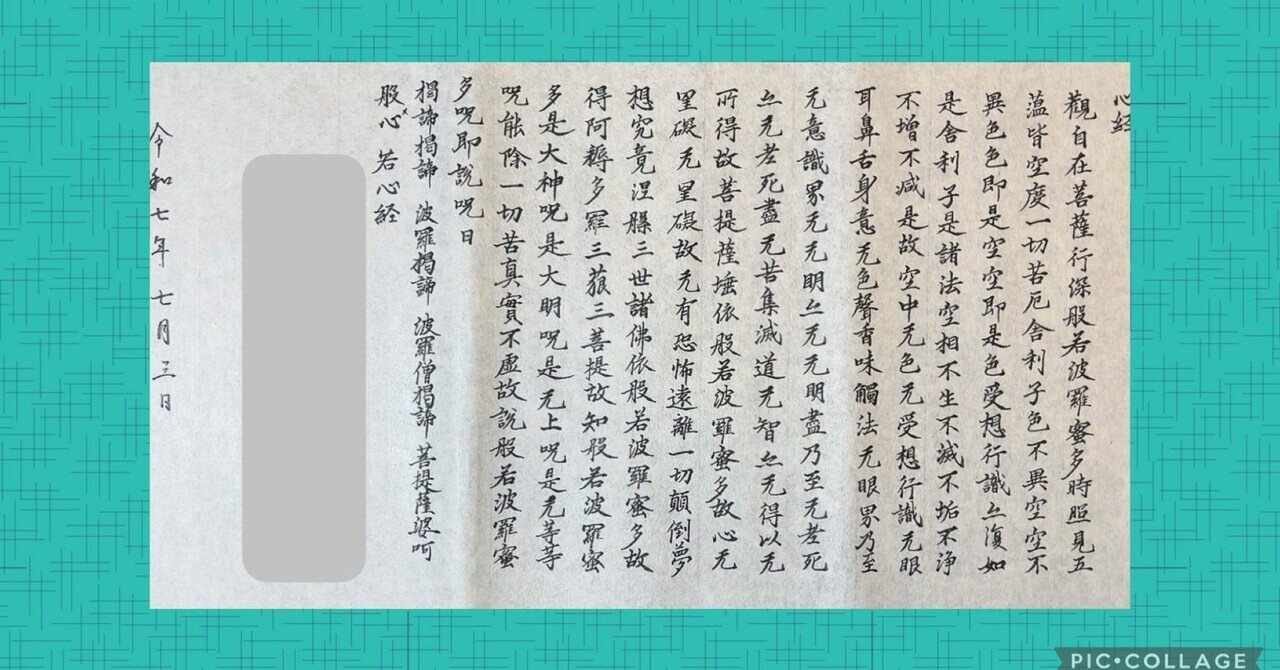 心経
觀自在菩薩行深般若波羅蜜多時照見五
薀皆空度一切苦厄舍利子色不異空空不
異色色即是空空即是色受想行識亦復如
是舍利子是諸法空相不生不滅不垢不浄
不增不減是故空中无色无受想行識无眼
耳鼻舌身意无色聲香味觸法无眼界乃至
无意識界无无明亦无无明盡乃至无老死
亦无老死盡无苦集滅道无智亦无得以无
所得故菩提薩埵依般若波羅蜜多故心无
罣礙无罣礙故无有恐怖遠離一切顛倒夢
想究竟涅槃三世諸佛依般若波羅蜜多故
得阿耨多羅三藐三菩提故知般若波羅蜜
多是大神呪是大明呪是无上呪是无等等
呪能除一切苦真實不虛故說般若波羅蜜
多呪即說呪曰
揭諦揭諦 波羅揭諦 波羅僧揭諦 菩提薩婆呵
般心 若心経
令和七年 七月三日
PIC•COLLAGE